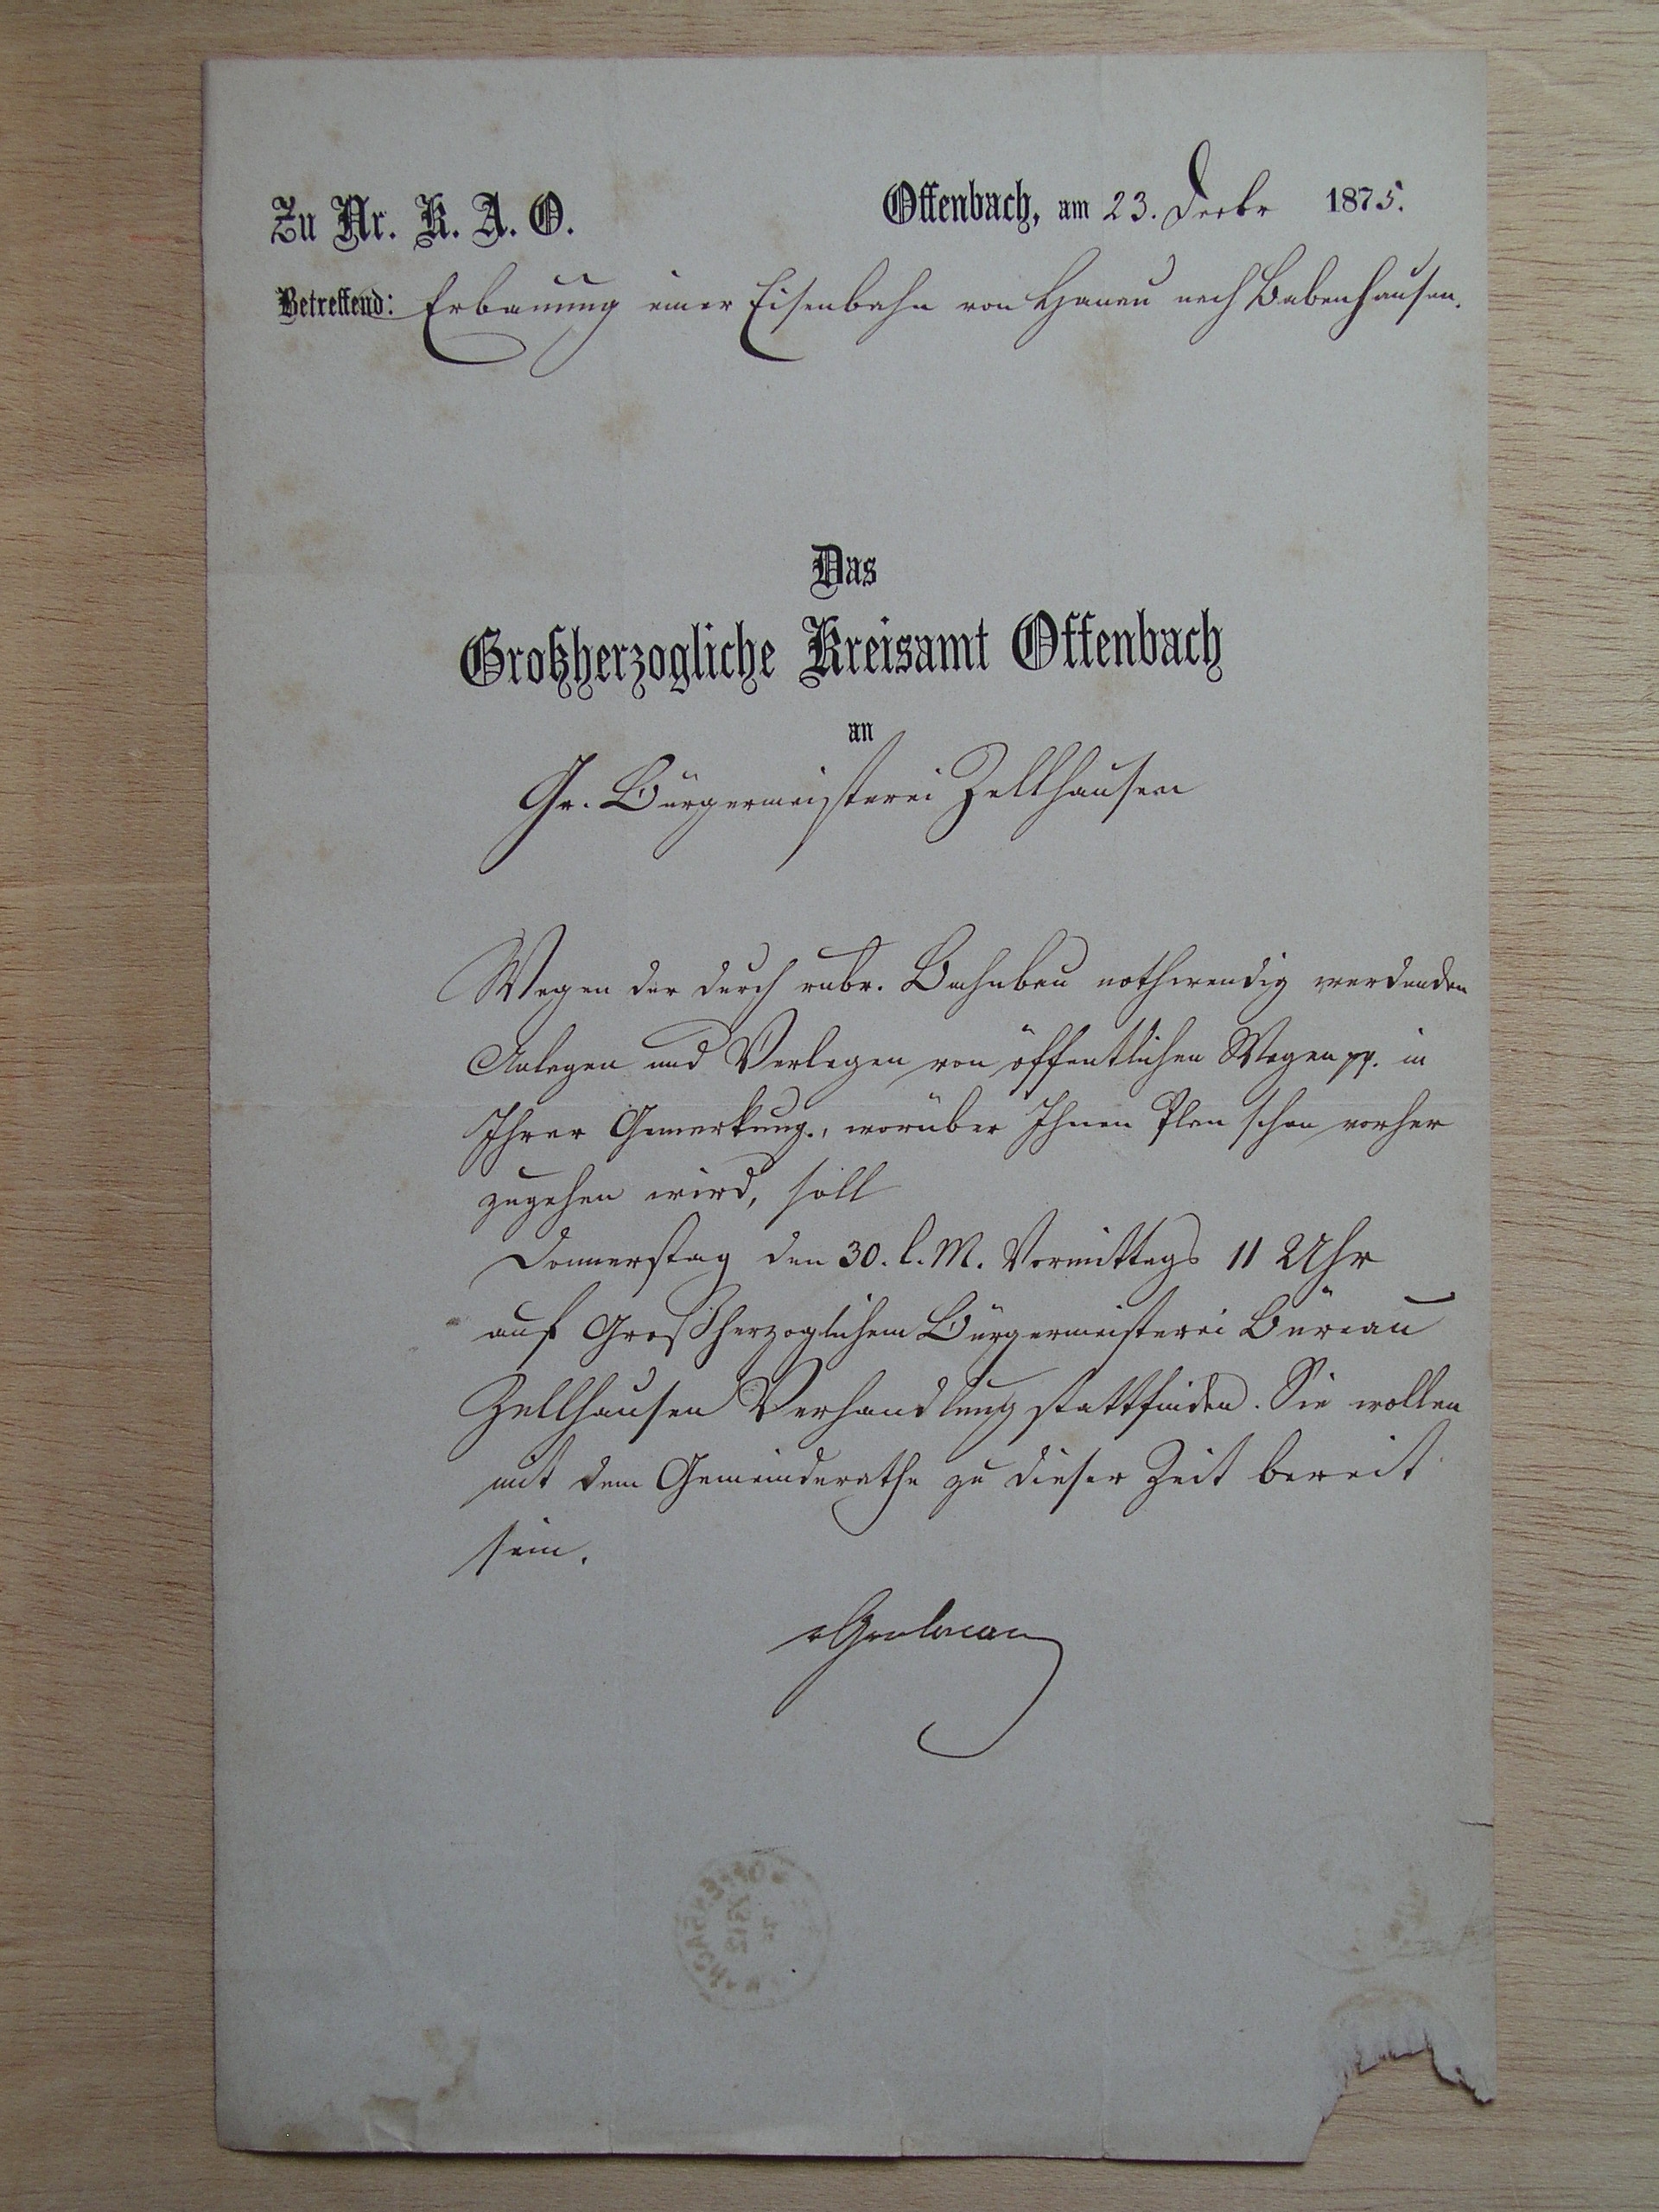 Zu Nr. K. A. O.
Offenbach, am 23. Decbr 1875.
Betreffend: Erbauung einer Eisenbahn von Hanau nach Babenhausen.
Das
Großherzogliche Kreisamt Offenbach
an
Gr. Bürgermeisterei Zellhausen
Wegen der durch rubr. Bahnbau nothwendig werdenden
Anlagen und Verlegen von öffentlichen Wegen pp. in
Ihrer Gemarkung., worüber Ihnen Plan schon vorher
zugehen wird, soll
Donnerstag den 30. l. M. Vormittags 11 Uhr
auf Großherzoglichem Bürgermeisterei Büreau
Zellhausen Verhandlung stattfinden. Sie wollen
mit dem Gemeinderathe zu dieser Zeit bereit
sein.
vGrolman
OFFENBACH